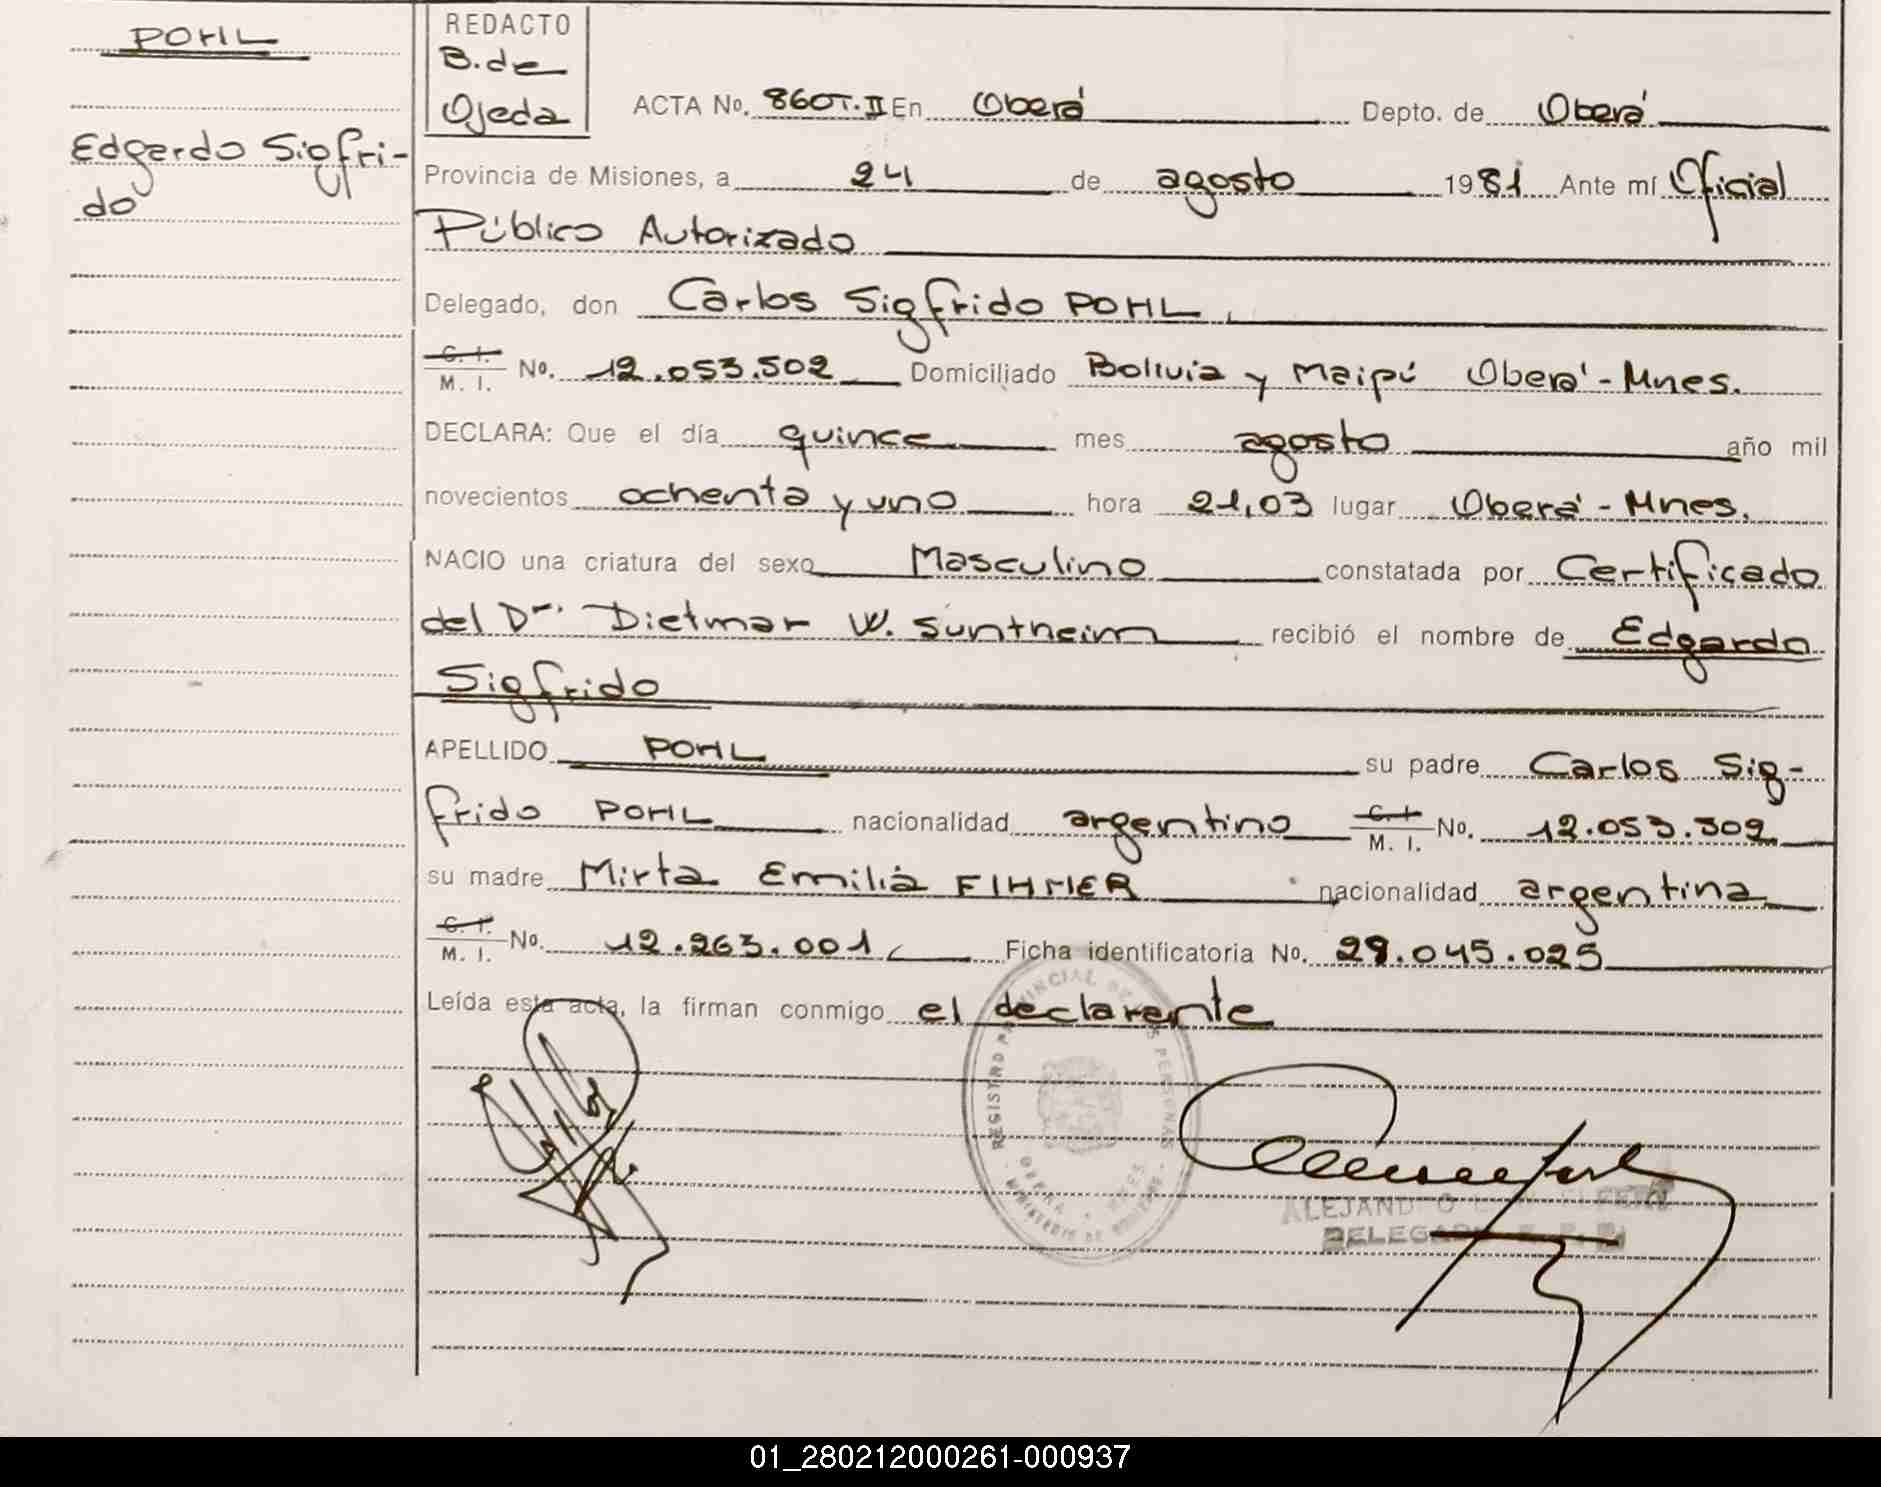 POHL
Edgardo Sigfri-
do
REDACTO
B. de
Ojeda
ACTA No. 860T.II En Oberá Depto. de Oberá
Provincia de Misiones, a 24 de agosto 1981 Ante mí Oficial
Público Autorizado
Delegado, don Carlos Sigfrido POHL
C. I. M. I. No. 12.053.502 Domiciliado Bolivia y Maipú Oberá - Mnes.
DECLARA: Que el día quince mes agosto año mil
novecientos ochenta y uno hora 21,03 lugar Oberá - Mnes.
NACIO una criatura del sexo Masculino constatada por Certificado
del Dr. Dietmar W. Suntheim recibió el nombre de Edgardo
Sigfrido
APELLIDO POHL su padre Carlos Sig-
frido POHL nacionalidad argentino C. I. M. I. No. 12.053.502
su madre Mirta Emilia FIHMER nacionalidad argentina
C. I. M. I. No. 12.263.001 Ficha identificatoria No. 29.045.025
Leída esta acta, la firman conmigo el declarante
REGISTRO PROVINCIAL DE LAS PERSONAS
OBERA - MNES
MINISTERIO DE GOBIERNO
ALEJANDRO
DELEGADO
01_280212000261-000937